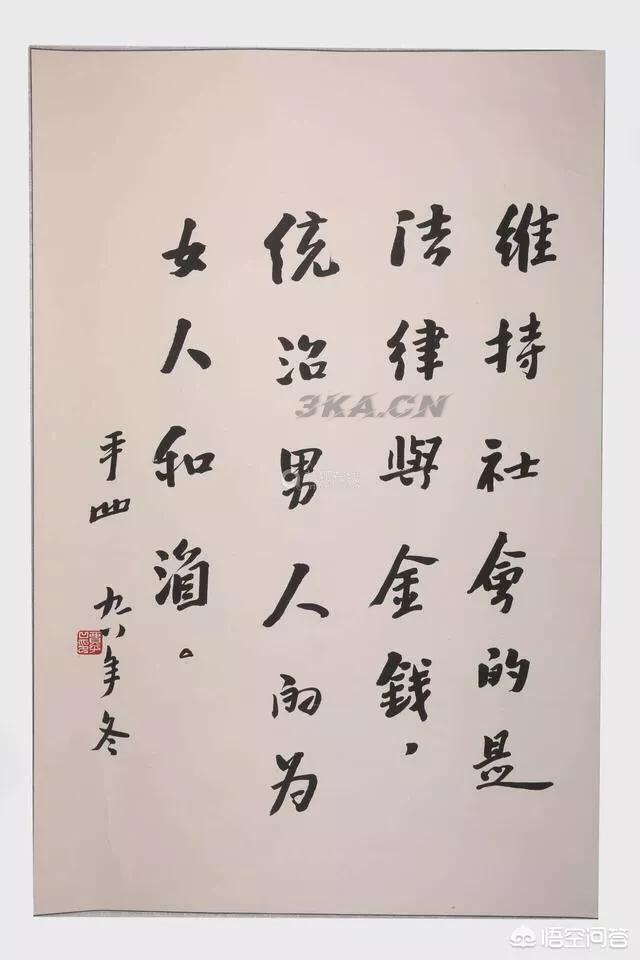 維持社會的是
法律與金錢，
統治男人的为
女人和酒。
平凹 九八年冬
3KA.CN
悟空问答